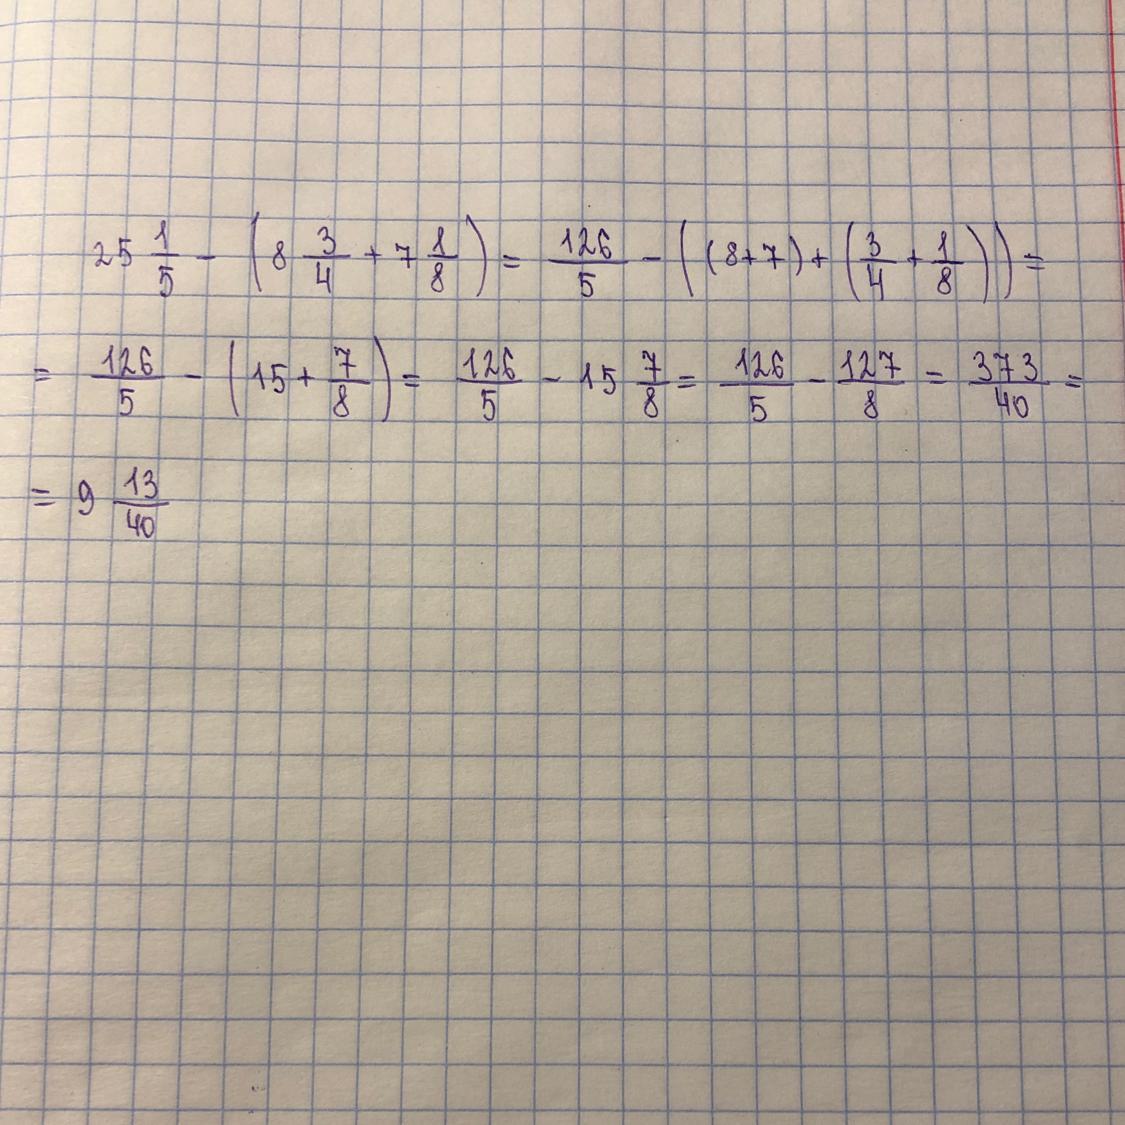 25 1/5 - (8 3/4 + 7 1/8) = 126/5 - ((8+7)+(3/4 + 1/8)) =
= 126/5 - (15 + 7/8) = 126/5 - 15 7/8 = 126/5 - 127/8 = 373/40 =
= 9 13/40